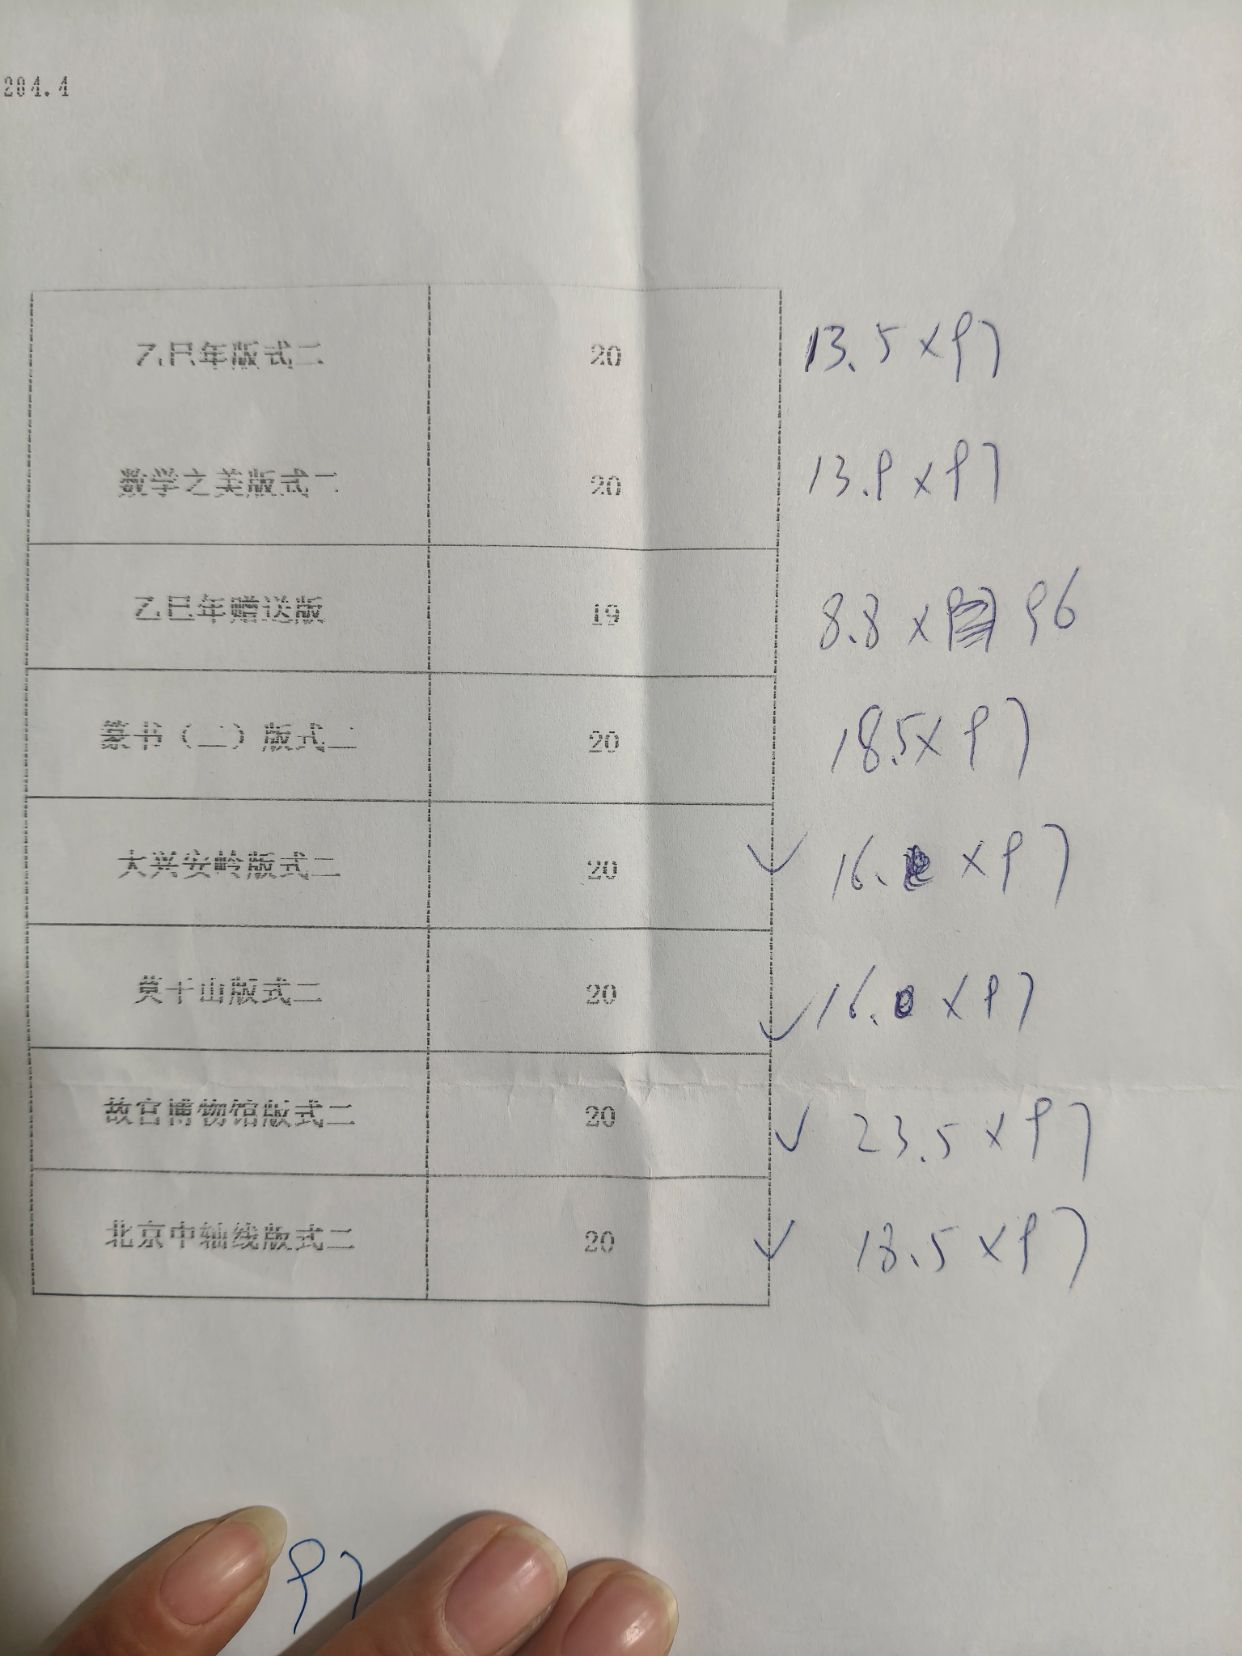 204.4
乙巳年版式二 20 13.5×97
数学之美版式二 20 13.9×97
乙巳年赠送版 19 8.8× 96
篆书（二）版式二 20 18.5×97
大兴安岭版式二 20 ✓ 16. ×97
莫干山版式二 20 ✓ 16.0 ×97
故宫博物馆版式二 20 ✓ 23.5×97
北京中轴线版式二 20 ✓ 18.5×97
97